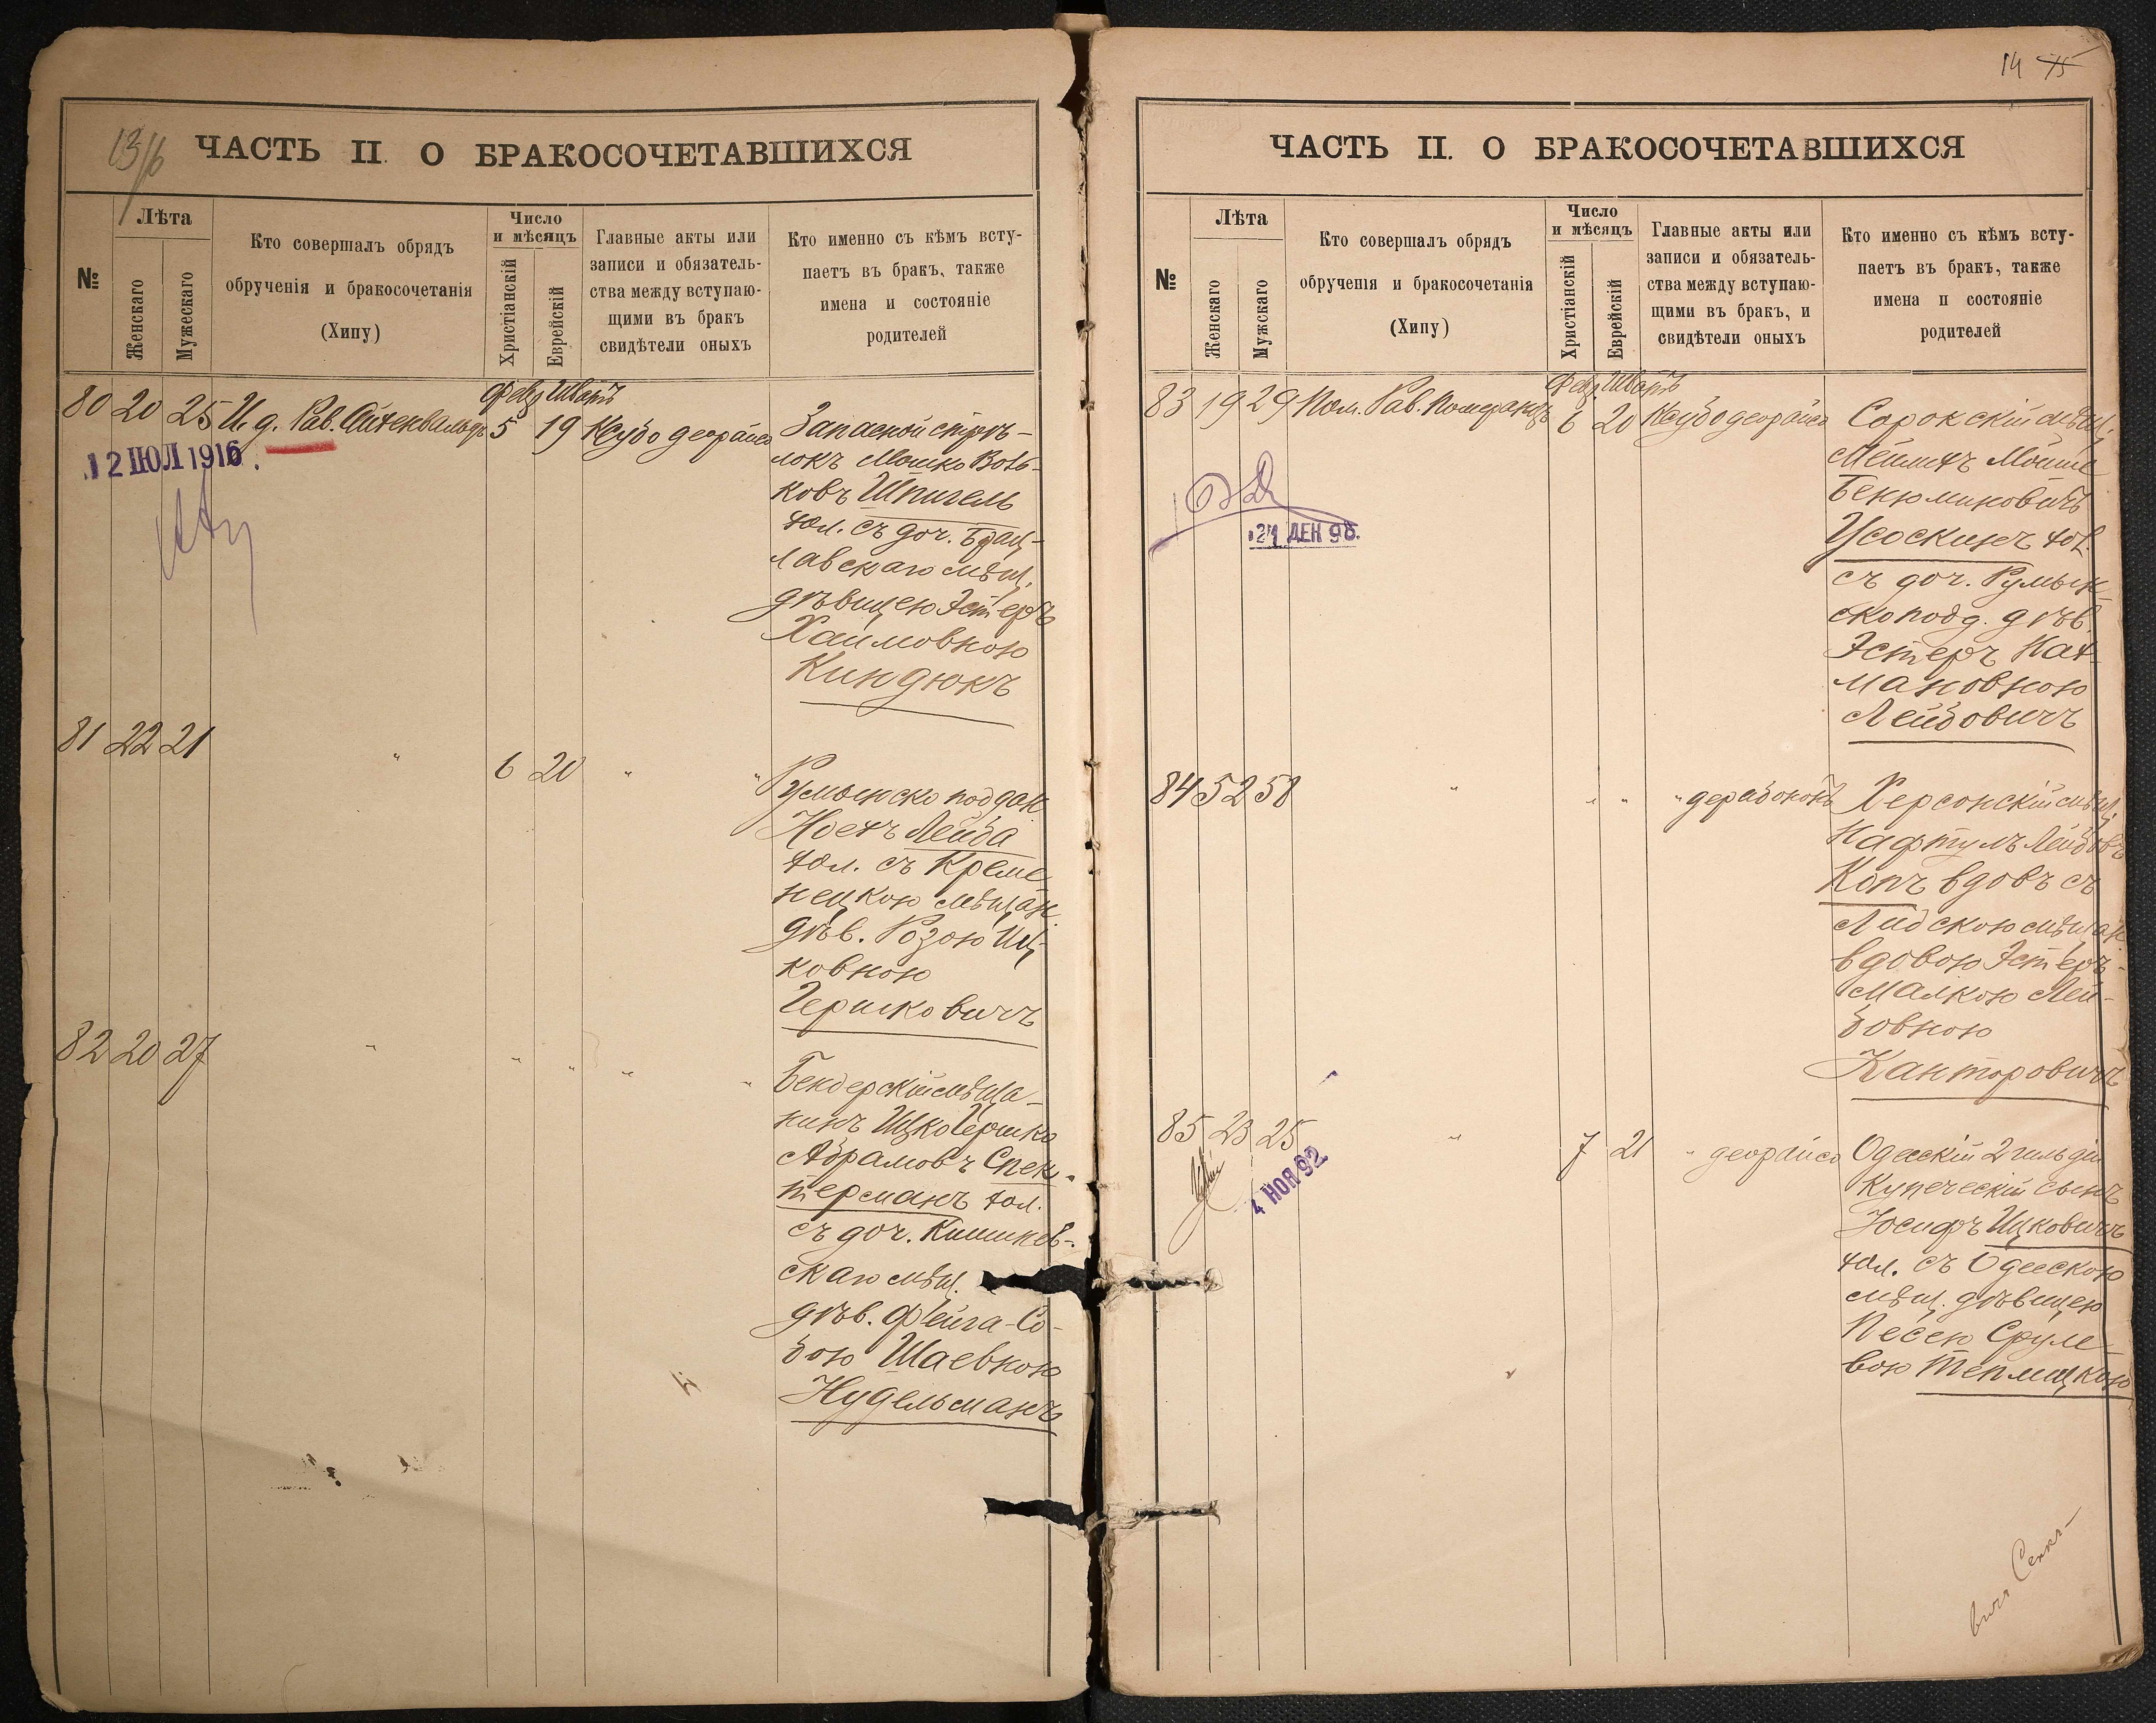 13/16
ЧАСТЬ II. О БРАКОСОЧЕТАВШИХСЯ
№
Лѣта
Женскаго
Мужескаго
Кто совершалъ обрядъ
обрученія и бракосочетанія
(Хипу)
Число
и мѣсяцъ
Христіанскій
Еврейскій
Главные акты или
записи и обязатель-
ства между вступаю-
щими въ бракъ
свидѣтели оныхъ
Кто именно съ кѣмъ всту-
паетъ въ бракъ, также
имена и состояніе
родителей
Фев. Шватъ
80 20 25 И. д. Рав. Айхенвальдъ 5 19 Ксубо деорайсо
12 ІЮЛ 1916
Запасной стрѣ-
локъ Мошко Воль-
ковъ Шпигель
хол. съ доч. Брац-
лавскаго мѣщ.
дѣвицею Эстеръ
Хаимовною
Киндюкъ
81 22 21 " 6 20 " "
Румынско поддан.
Ноехъ Лейба
хол. съ Креме
нецкою мѣщан.
дѣв. Розою Иц-
ковною
Гершковичъ
82 20 27 " " " " "
Бендерскій мѣща-
нинъ Ицко Гершко
Абрамовъ Спек-
терманъ хол.
съ доч. Кишинев-
скаго мѣщ.
дѣв. Фейга-Со-
бою Шаевною
Нудельманъ
14 15
ЧАСТЬ II. О БРАКОСОЧЕТАВШИХСЯ
№
Лѣта
Женскаго
Мужскаго
Кто совершалъ обрядъ
обрученія и бракосочетанія
(Хипу)
Число
и мѣсяцъ
Христіанскій
Еврейскій
Главные акты или
записи и обязатель-
ства между вступаю-
щими въ бракъ, и
свидѣтели оныхъ
Кто именно съ кѣмъ всту-
паетъ въ бракъ, также
имена и состояніе
родителей
Фев. Шватъ
83 19 29 Пом. Рав. Померанцъ 6 20 Ксубо деорайсо
ДЕК 98.
Сорокскій мѣщ.
Мойше
Бенюминовичъ
Усоскинъ хол.
съ доч. Румын-
скопод. дѣв.
Эстеръ Нах-
мановною
Лейбовичъ
84 52 58 " " " " дерабононъ
Херсонскій мѣщ.
Нафтулъ Лейбовъ
Копъ вдовъ съ
Лидскою мѣщан.
вдовою Эстеръ-
Малкою Лей-
бовною
Канторовичъ
85 23 25 " 7 21 " деорайсо
4 НОЯ 92
Одесскій 2 гильдіи
купеческій сынъ
Іосифъ Ицковичъ
хол. съ Одесскою
мѣщ. дѣвицею
Песею Сруле-
вою Теплицкою